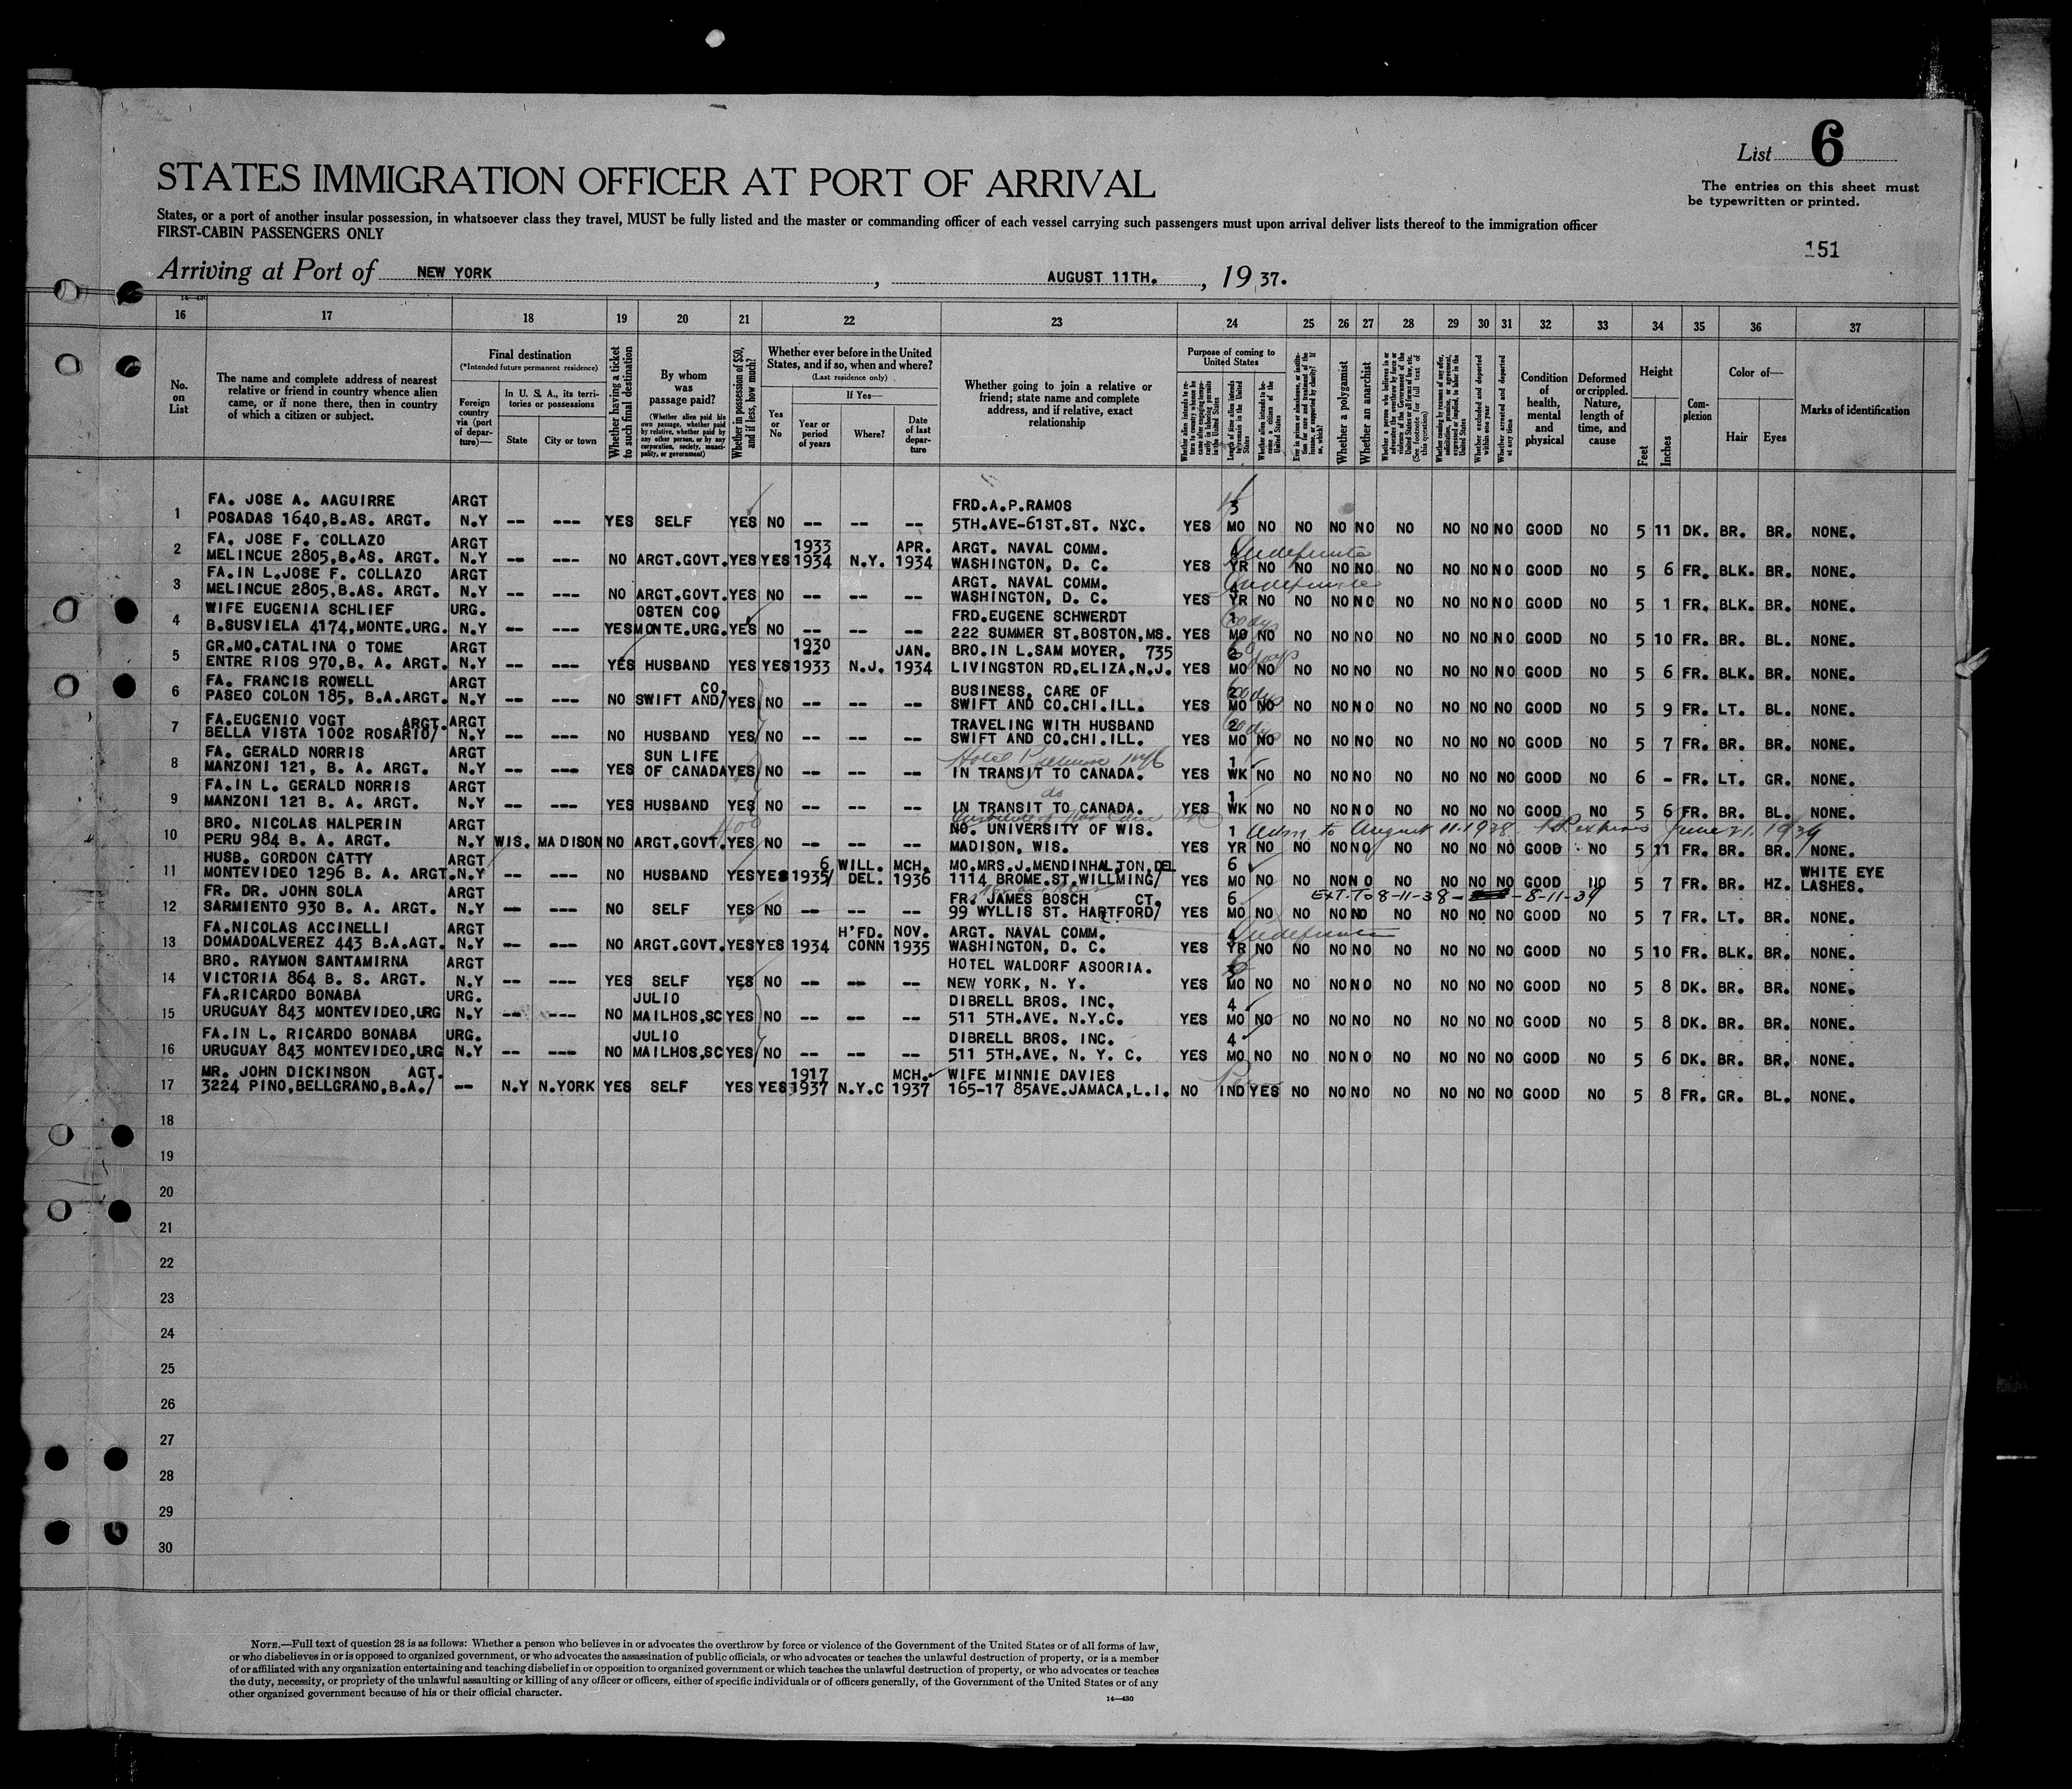 List 6
STATES IMMIGRATION OFFICER AT PORT OF ARRIVAL
The entries on this sheet must
be typewritten or printed.
States, or a port of another insular possession, in whatsoever class they travel, MUST be fully listed and the master or commanding officer of each vessel carrying such passengers must upon arrival deliver lists thereof to the immigration officer
FIRST-CABIN PASSENGERS ONLY
151
Arriving at Port of NEW YORK , AUGUST 11TH. , 19 37.
16 17 18 19 20 21 22 23 24 25 26 27 28 29 30 31 32 33 34 35 36 37
No. on List
The name and complete address of nearest relative or friend in country whence alien came, or if none there, then in country of which a citizen or subject.
Final destination
(*Intended future permanent residence)
Foreign country via (port of departure)—
In U. S. A., its territories or possessions
State
City or town
Whether having a ticket to such final destination
By whom was passage paid?
(Whether alien paid his own passage, whether paid by relative, whether paid by any other person, or by any corporation, society, municipality, or government)
Whether in possession of $50, and if less, how much?
Whether ever before in the United States, and if so, when and where?
(Last residence only)
Yes or No
If Yes—
Year or period of years
Where?
Date of last departure
Whether going to join a relative or friend; state name and complete address, and if relative, exact relationship
Purpose of coming to United States
Length of time alien intends to remain in the United States
Whether alien intends to become a citizen of the United States
Whether a polygamist
Whether an anarchist
Whether excluded and deported within one year
Whether arrested and deported at any time
Condition of health, mental and physical
Deformed or crippled. Nature, length of time, and cause
Height
Feet
Inches
Complexion
Color of—
Hair
Eyes
Marks of identification
FA. JOSE A. AAGUIRRE ARGT FRD.A.P.RAMOS 3
1 POSADAS 1640,B.AS. ARGT. N.Y -- --- YES SELF YES NO -- -- -- 5TH.AVE-61ST.ST. NYC. YES MO NO NO NO NO NO NO NO NO GOOD NO 5 11 DK. BR. BR. NONE.
FA. JOSE F. COLLAZO ARGT 1933 APR. ARGT. NAVAL COMM. Indefinite
2 MELINCUE 2805,B.AS. ARGT. N.Y -- --- NO ARGT.GOVT. YES YES 1934 N.Y. 1934 WASHINGTON, D. C. YES YR NO NO NO NO NO NO NO NO GOOD NO 5 6 FR. BLK. BR. NONE.
FA.IN L.JOSE F. COLLAZO ARGT ARGT. NAVAL COMM. Indefinite
3 MELINCUE 2805,B.AS. ARGT. N.Y -- --- NO ARGT.GOVT. YES NO -- -- -- WASHINGTON, D. C. YES YR NO NO NO NO NO NO NO NO GOOD NO 5 1 FR. BLK. BR. NONE.
WIFE EUGENIA SCHLIEF URG. OSTEN COO FRD.EUGENE SCHWERDT 1
4 B.SUSVIELA 4174,MONTE.URG. N.Y -- --- YES MONTE.URG. YES NO -- -- -- 222 SUMMER ST.BOSTON,MS. YES MO NO NO NO NO NO NO NO NO GOOD NO 5 10 FR. BR. BL. NONE.
GR.MO.CATALINA O TOME ARGT 1930 JAN. BRO.IN L.SAM MOYER, 735 days
5 ENTRE RIOS 970,B. A. ARGT. N.Y -- --- YES HUSBAND YES YES 1933 N.J. 1934 LIVINGSTON RD.ELIZA,N.J. YES MO NO NO NO NO NO NO NO NO GOOD NO 5 6 FR. BLK. BR. NONE.
FA. FRANCIS ROWELL ARGT CO. BUSINESS, CARE OF
6 PASEO COLON 185, B.A.ARGT. N.Y -- --- NO SWIFT AND/ YES NO -- -- -- SWIFT AND CO.CHI.ILL. YES MO NO NO NO NO NO NO NO NO GOOD NO 5 9 FR. LT. BL. NONE.
FA.EUGENIO VOGT ARGT. ARGT TRAVELING WITH HUSBAND 2
7 BELLA VISTA 1002 ROSARIO/ N.Y -- --- NO HUSBAND YES NO -- -- -- SWIFT AND CO.CHI.ILL. YES MO NO NO NO NO NO NO NO NO GOOD NO 5 7 FR. BR. BR. NONE.
FA. GERALD NORRIS ARGT SUN LIFE Hotel 1
8 MANZONI 121, B. A. ARGT. N.Y -- --- YES OF CANADA YES NO -- -- -- IN TRANSIT TO CANADA. YES WK NO NO NO NO NO NO NO NO GOOD NO 6 - FR. LT. GR. NONE.
FA.IN L. GERALD NORRIS ARGT do 1
9 MANZONI 121 B. A. ARGT. N.Y -- --- YES HUSBAND YES NO -- -- -- IN TRANSIT TO CANADA. YES WK NO NO NO NO NO NO NO NO GOOD NO 5 6 FR. BR. BL. NONE.
BRO. NICOLAS HALPERIN ARGT 400 NO. UNIVERSITY OF WIS. 1 Adm to August 11.1938 June 21, 1939
10 PERU 984 B. A. ARGT. N.Y WIS. MADISON NO ARGT.GOVT. YES NO -- -- -- MADISON, WIS. YES YR NO NO NO NO NO NO NO NO GOOD NO 5 11 FR. BR. BR. NONE.
HUSB. GORDON CATTY ARGT 6 WILL. MCH. MO.MRS.J.MENDINHALTON,DEL 6 WHITE EYE
11 MONTEVIDEO 1296 B. A. ARGT. N.Y -- --- NO HUSBAND YES YES 1935/ DEL. 1936 1114 BROME.ST.WILLMING/ YES MO NO NO NO NO NO NO NO NO GOOD NO 5 7 FR. BR. HZ. LASHES.
FR. DR. JOHN SOLA ARGT FR. JAMES BOSCH CT. 6 EXT. TO 8-11-38 - 8-11-39
12 SARMIENTO 930 B. A. ARGT. N.Y -- --- NO SELF YES NO -- -- -- 99 WYLLIS ST. HARTFORD/ YES MO NO NO NO NO NO NO NO NO GOOD NO 5 7 FR. LT. BR. NONE.
FA.NICOLAS ACCINELLI ARGT H'FD. NOV. ARGT. NAVAL COMM. Indefinite
13 DOMADOALVEREZ 443 B.A.AGT. N.Y -- --- NO ARGT.GOVT. YES YES 1934 CONN 1935 WASHINGTON, D. C. YES YR NO NO NO NO NO NO NO NO GOOD NO 5 10 FR. BLK. BR. NONE.
BRO. RAYMON SANTAMIRNA ARGT HOTEL WALDORF ASOORIA.
14 VICTORIA 864 B. S. ARGT. N.Y -- --- YES SELF YES NO -- -- -- NEW YORK, N. Y. YES MO NO NO NO NO NO NO NO NO GOOD NO 5 8 DK. BR. BR. NONE.
FA.RICARDO BONABA URG. JULIO DIBRELL BROS. INC. 4
15 URUGUAY 843 MONTEVIDEO,URG N.Y -- --- NO MAILHOS,SC YES NO -- -- -- 511 5TH.AVE. N.Y.C. YES MO NO NO NO NO NO NO NO NO GOOD NO 5 8 DK. BR. BR. NONE.
FA.IN L. RICARDO BONABA URG. JULIO DIBRELL BROS. INC. 4
16 URUGUAY 843 MONTEVIDEO,URG N.Y -- --- NO MAILHOS,SC YES NO -- -- -- 511 5TH.AVE. N. Y. C. YES MO NO NO NO NO NO NO NO NO GOOD NO 5 6 DK. BR. BR. NONE.
MR. JOHN DICKINSON AGT. 1917 MCH. WIFE MINNIE DAVIES
17 3224 PINO,BELLGRANO,B.A./ -- N.Y N.YORK YES SELF YES YES 1937 N.Y.C 1937 165-17 85AVE.JAMACA,L.I. NO IND YES NO NO NO NO NO NO NO GOOD NO 5 8 FR. GR. BL. NONE.
18
19
20
21
22
23
24
25
26
27
28
29
30
NOTE.—Full text of question 28 is as follows: Whether a person who believes in or advocates the overthrow by force or violence of the Government of the United States or of all forms of law,
or who disbelieves in or is opposed to organized government, or who advocates the assassination of public officials, or who advocates or teaches the unlawful destruction of property, or is a member
of or affiliated with any organization entertaining and teaching disbelief in or opposition to organized government or which teaches the unlawful destruction of property, or who advocates or teaches
the duty, necessity, or propriety of the unlawful assaulting or killing of any officer or officers, either of specific individuals or of officers generally, of the Government of the United States or of any
other organized government because of his or their official character.
14—430